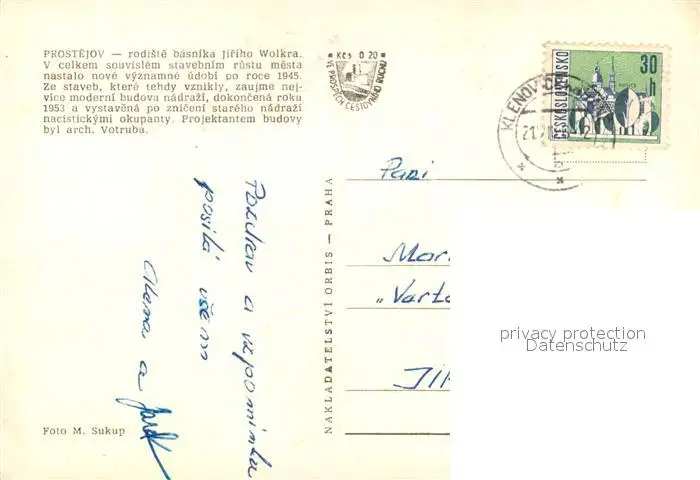 PROSTĚJOV — rodiště básníka Jiřího Wolkra.
V celkem souvislém stavebním růstu města
nastalo nové významné údobí po roce 1945.
Ze staveb, které tehdy vznikly, zaujme nej-
více moderní budova nádraží, dokončená roku
1953 a vystavěná po zničení starého nádraží
nacistickými okupanty. Projektantem budovy
byl arch. Votruba.
Kčs 0 20
VE PROSPĚCH CESTOVNÍHO RUCHU
ČESKOSLOVENSKO
30
h
KLENOV
21
Pozdrav a vzpomínku
posílá všem
Alena a
NAKLADATELSTVÍ ORBIS — PRAHA
Paní
Mar
„Varta
JIH
privacy protection
Datenschutz
Foto M. Sukup